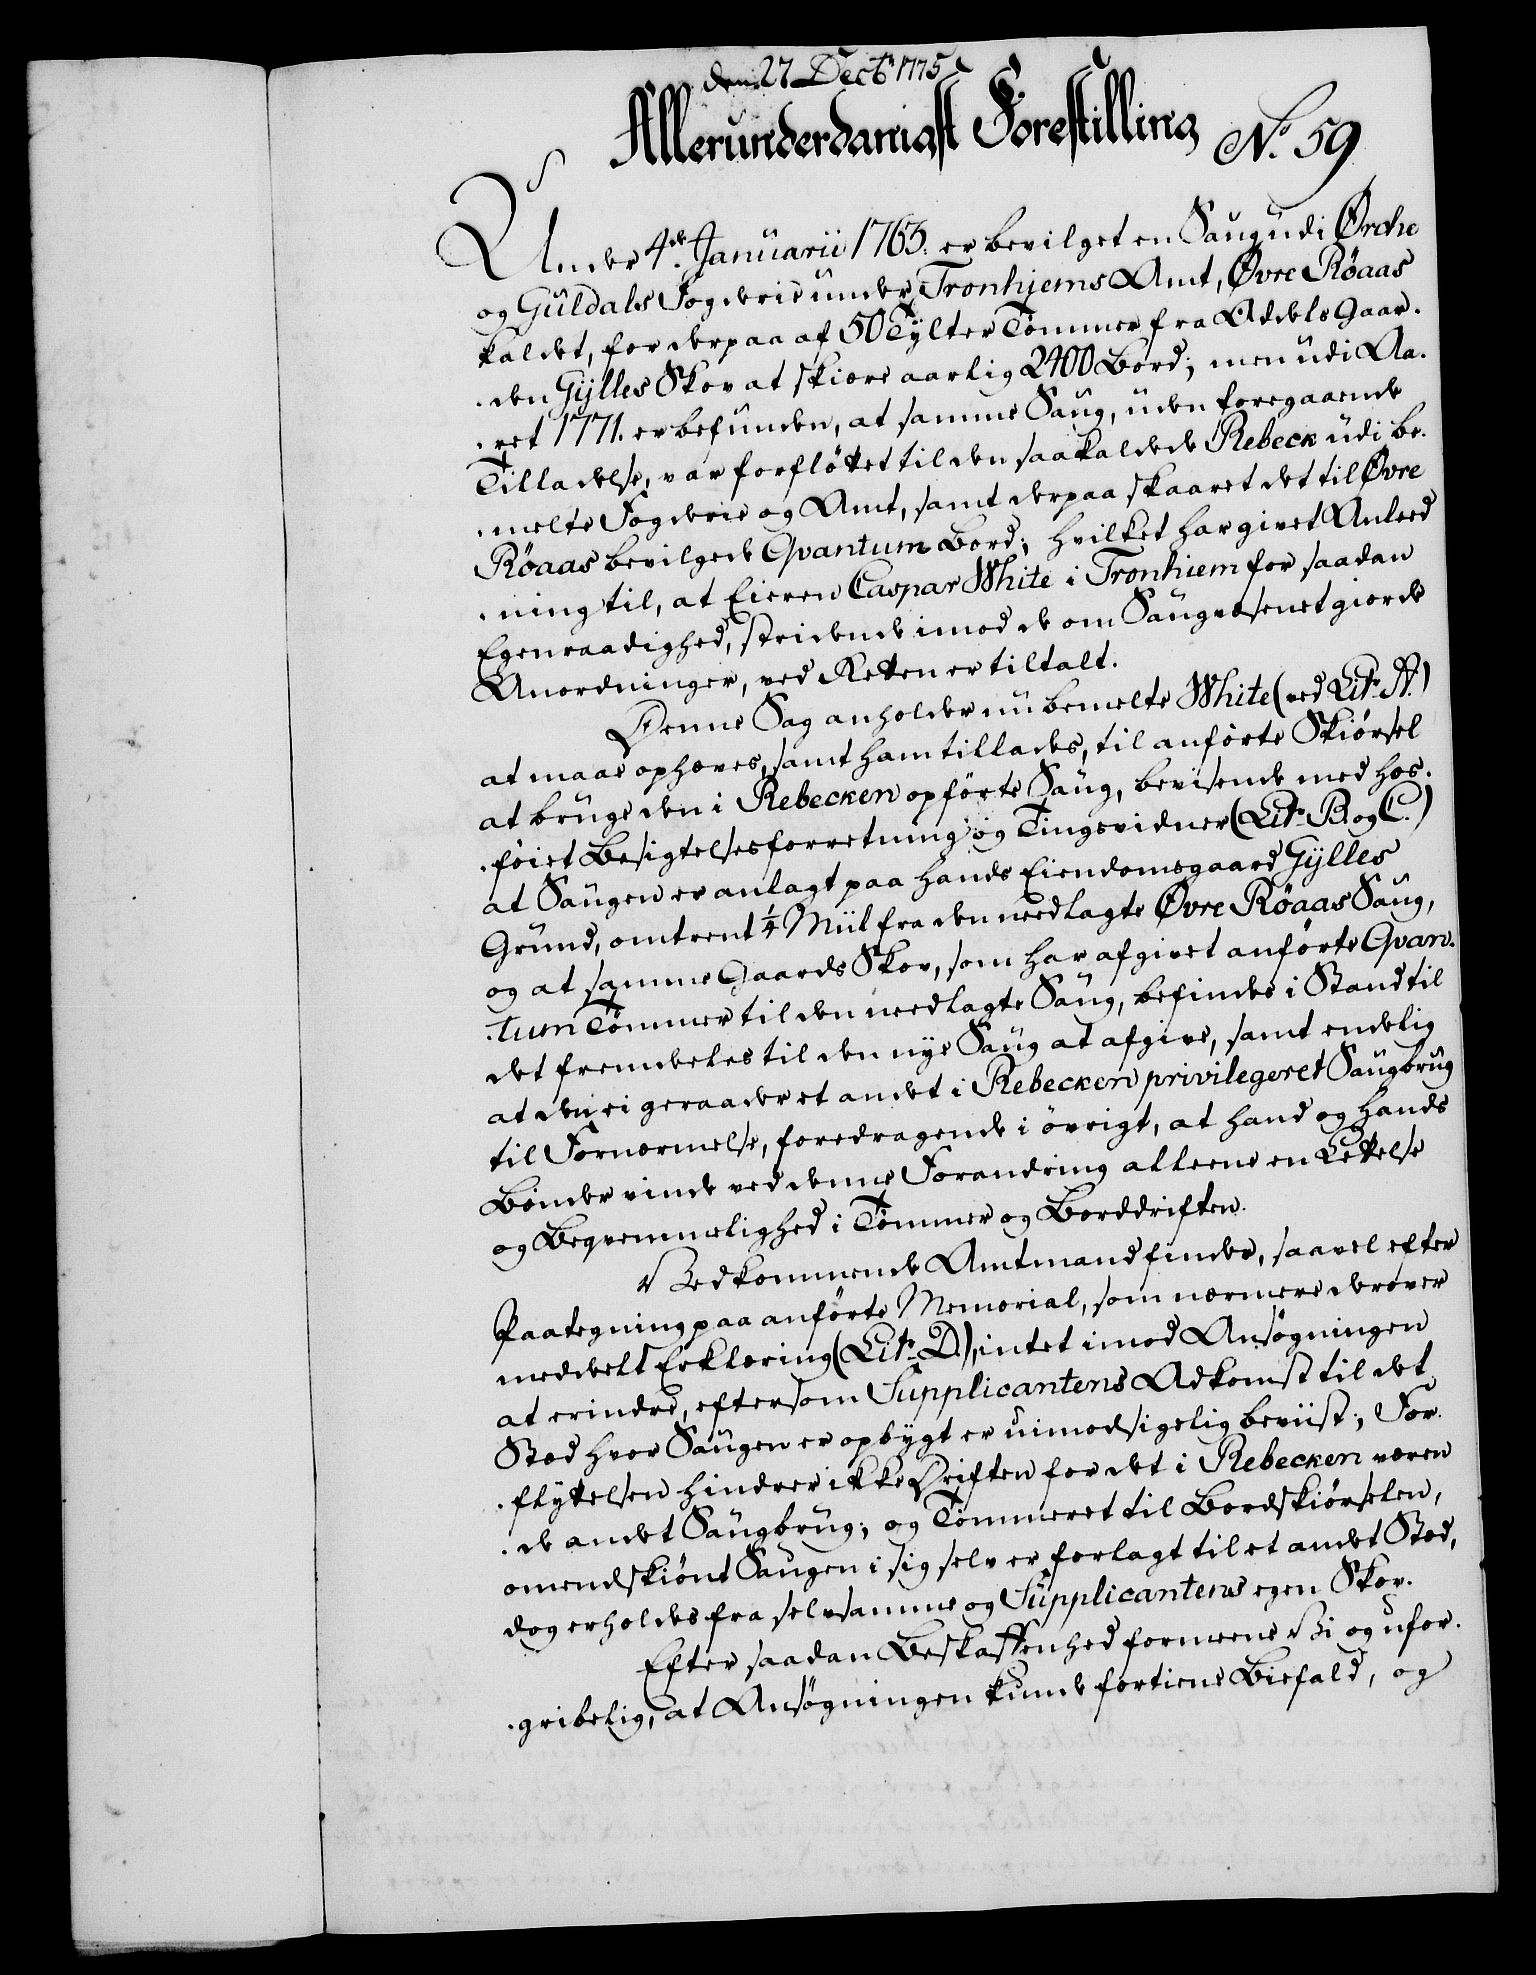 den 27 Dectr 1775
Allerunderdanigst Forestilling No. 59
Under 4de Januarii 1763. er bevilget en Saug udi Ørche
og Guldals Fogderie under Tronhjems Amt, Øvre Røaas
kaldet, for derpaa af 50 Tylter Tømmer fra Adels Gaar-
den Gylles Skov at skiære aarlig 2400 Bord; men udi Aa-
ret 1771. er befunden, at samme Saug, uden foregaaende
Tilladelse, var forfløttet til den saakaldede Rebeck udi be-
melte Fogderie og Amt, samt derpaa skaaret det til Øvre
Røaas bevilgede Qvantum Bord; hvilket har givet Anleed
ning til, at Eieren Caspar White i Tronhiem for saadan
Egenraadighed, stridende imod de om Saugvæsenet giorde
Anordninger, ved Retten er tiltalt.
Denne Sag anholder nu bemelte White (ved Litr. A.)
at maae ophæves, samt ham tillades, til anførte Skiørsel
at bruge den i Rebecken opførte Saug, bevisende med hos-
føiet Besigtelsesforretning og Tingsvidner (Litr. B og C.)
at Saugen er anlagt paa hands Eiendomsgaard Gylles
Grund, omtrent 1/4 Miil fra den nedlagte Øvre Røaas Saug,
og at samme Gaards Skov, som har afgivet anførte Qvan-
tum Tømmer til den nedlagte Saug, befindes i Stand til
det fremdeeles til den nye Saug at afgive, samt endelig
at den ei geraader et andet i Rebecken privilegeret Saugbrug
til Fornærmelse, foredragende i øvrigt, at hand og hands
Bønder vinde ved denne Forandring alleene en Lettelse
og Beqvemmelighed i Tømmer og Borddriften.
Vedkommende Amtmand finder, saavel efter
Paategning paa anførte Memorial, som nærmere derover
meddelt Erklæring (Litr. D.), intet imod Ansøgningen
at erindre, eftersom Supplicantens Adkomst til det
Sted hvor Saugen er opbygt er uimodsigelig beviist; For-
flyttelsen hindrer ikke Driften for det i Rebecken væren
de andet Saugbrug; og Tømmeret til Bordskiørselen,
omendskiønt Saugen i sig selv er forlagt til et andet Sted,
dog erholdes fra selvsamme og Supplicantens egen Skov.
Efter saadan Beskaffenhed formeene Vi og ufor-
gribelig, at Ansøgningen kunde fortiene Biefald, og